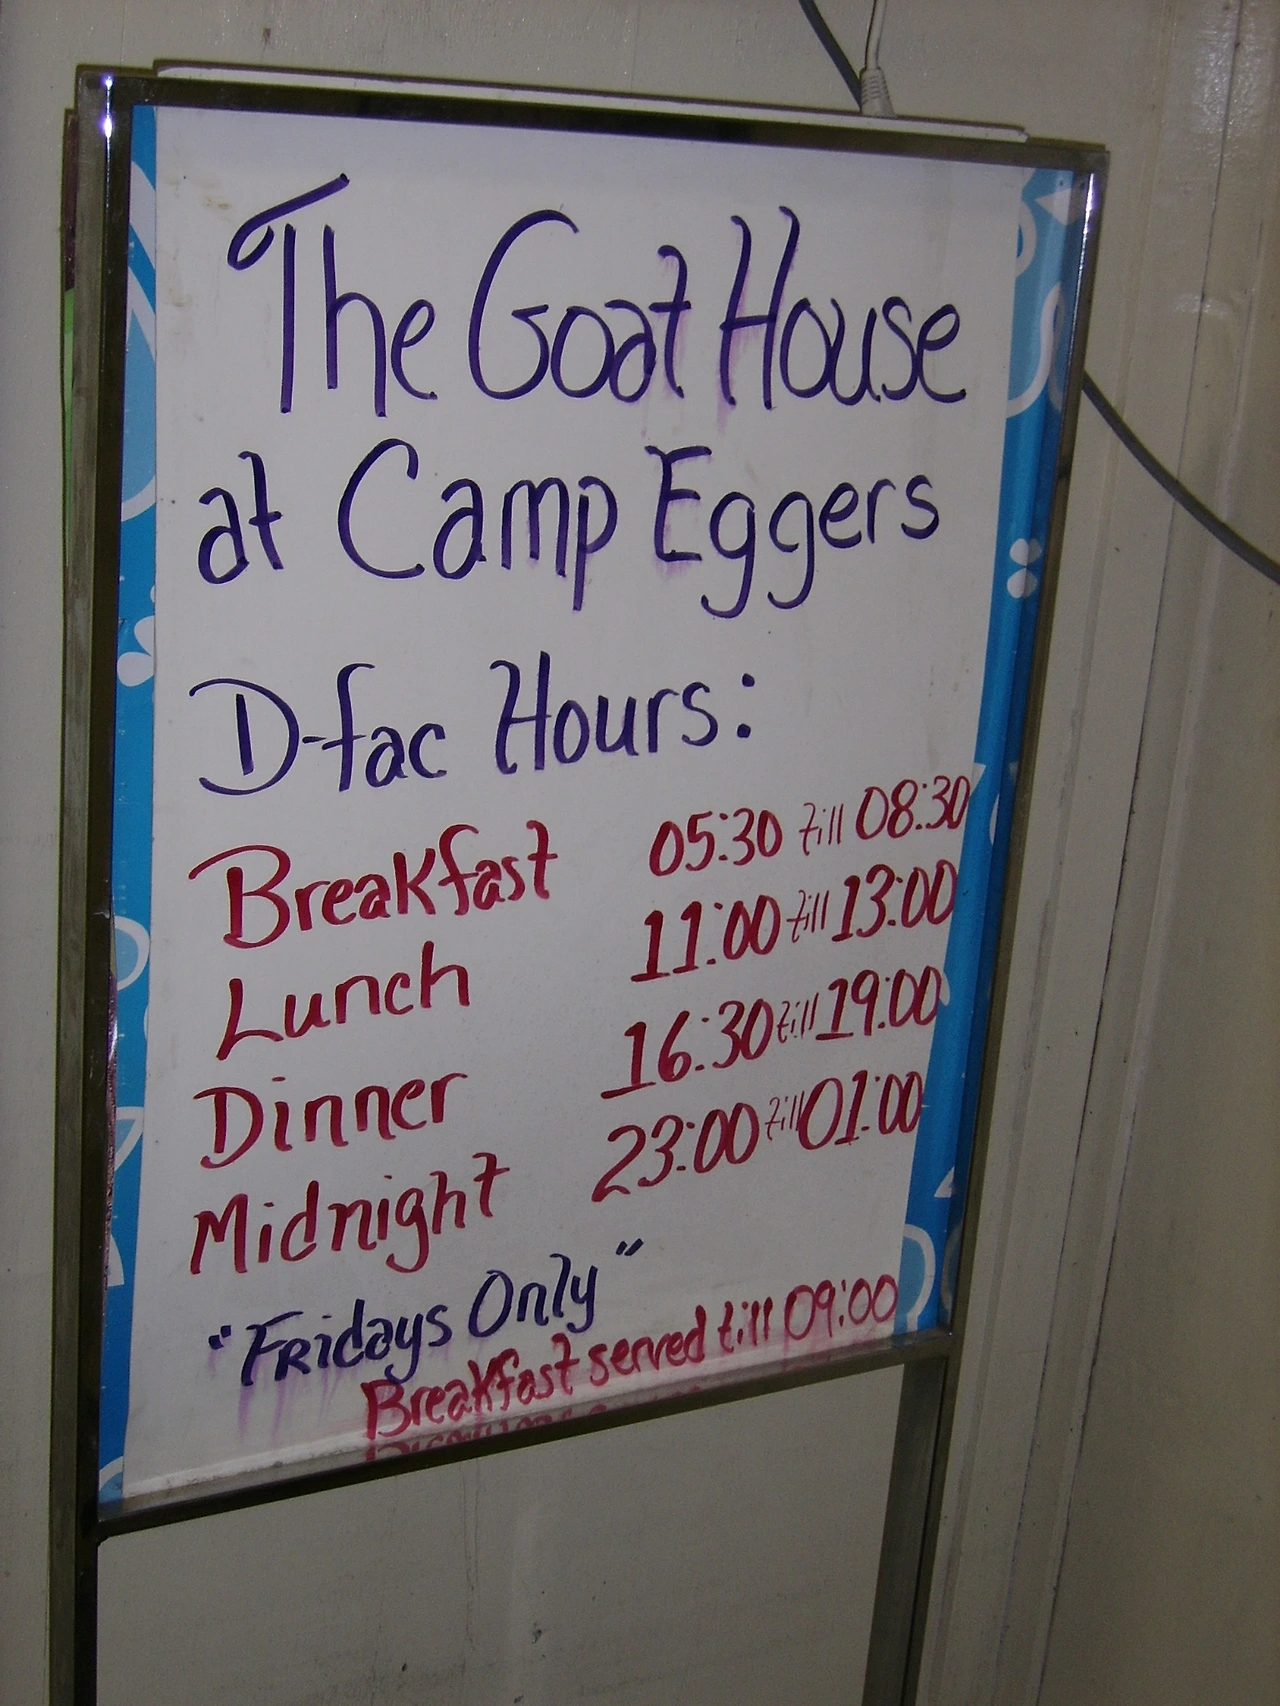 The Goat House
at Camp Eggers
D-fac Hours:
Breakfast 05:30 till 08:30
Lunch 11:00 till 13:00
Dinner 16:30 till 19:00
Midnight 23:00 till 01:00
"Fridays Only"
Breakfast served till 09:00